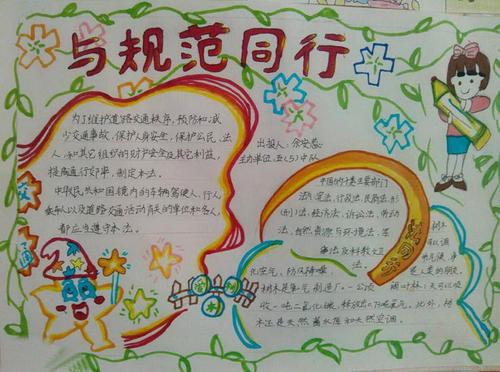 与规范同行
为了维护道路交通秩序,预防和减
少交通事故,保护人身安全,保护公民、法
人和其它组织的财产安全及其它利益,
提高通行效率,制定本法。
中华人民共和国境内的车辆驾驶人、行人
乘车人以及道路交通活动有关的单位和各人,
都应当遵守本法。
出报人:余安蕊
主办单位:五(5)中队
中国的十套主要部门
法:宪法、行政法、民商法、刑
(刑)法、经济法、诉讼法、劳动
法、自然资源与环境法、军
事法及科教文卫
法。
树木
可以调
节气候,净
化空气,防风降噪
是人类的朋友,
树木是氧气制造厂,一公顷
阔叶林1天可以吸
收一吨二氧化碳,释放0.7吨氧气。此外,树
木还是天然蓄水库和天然空调。